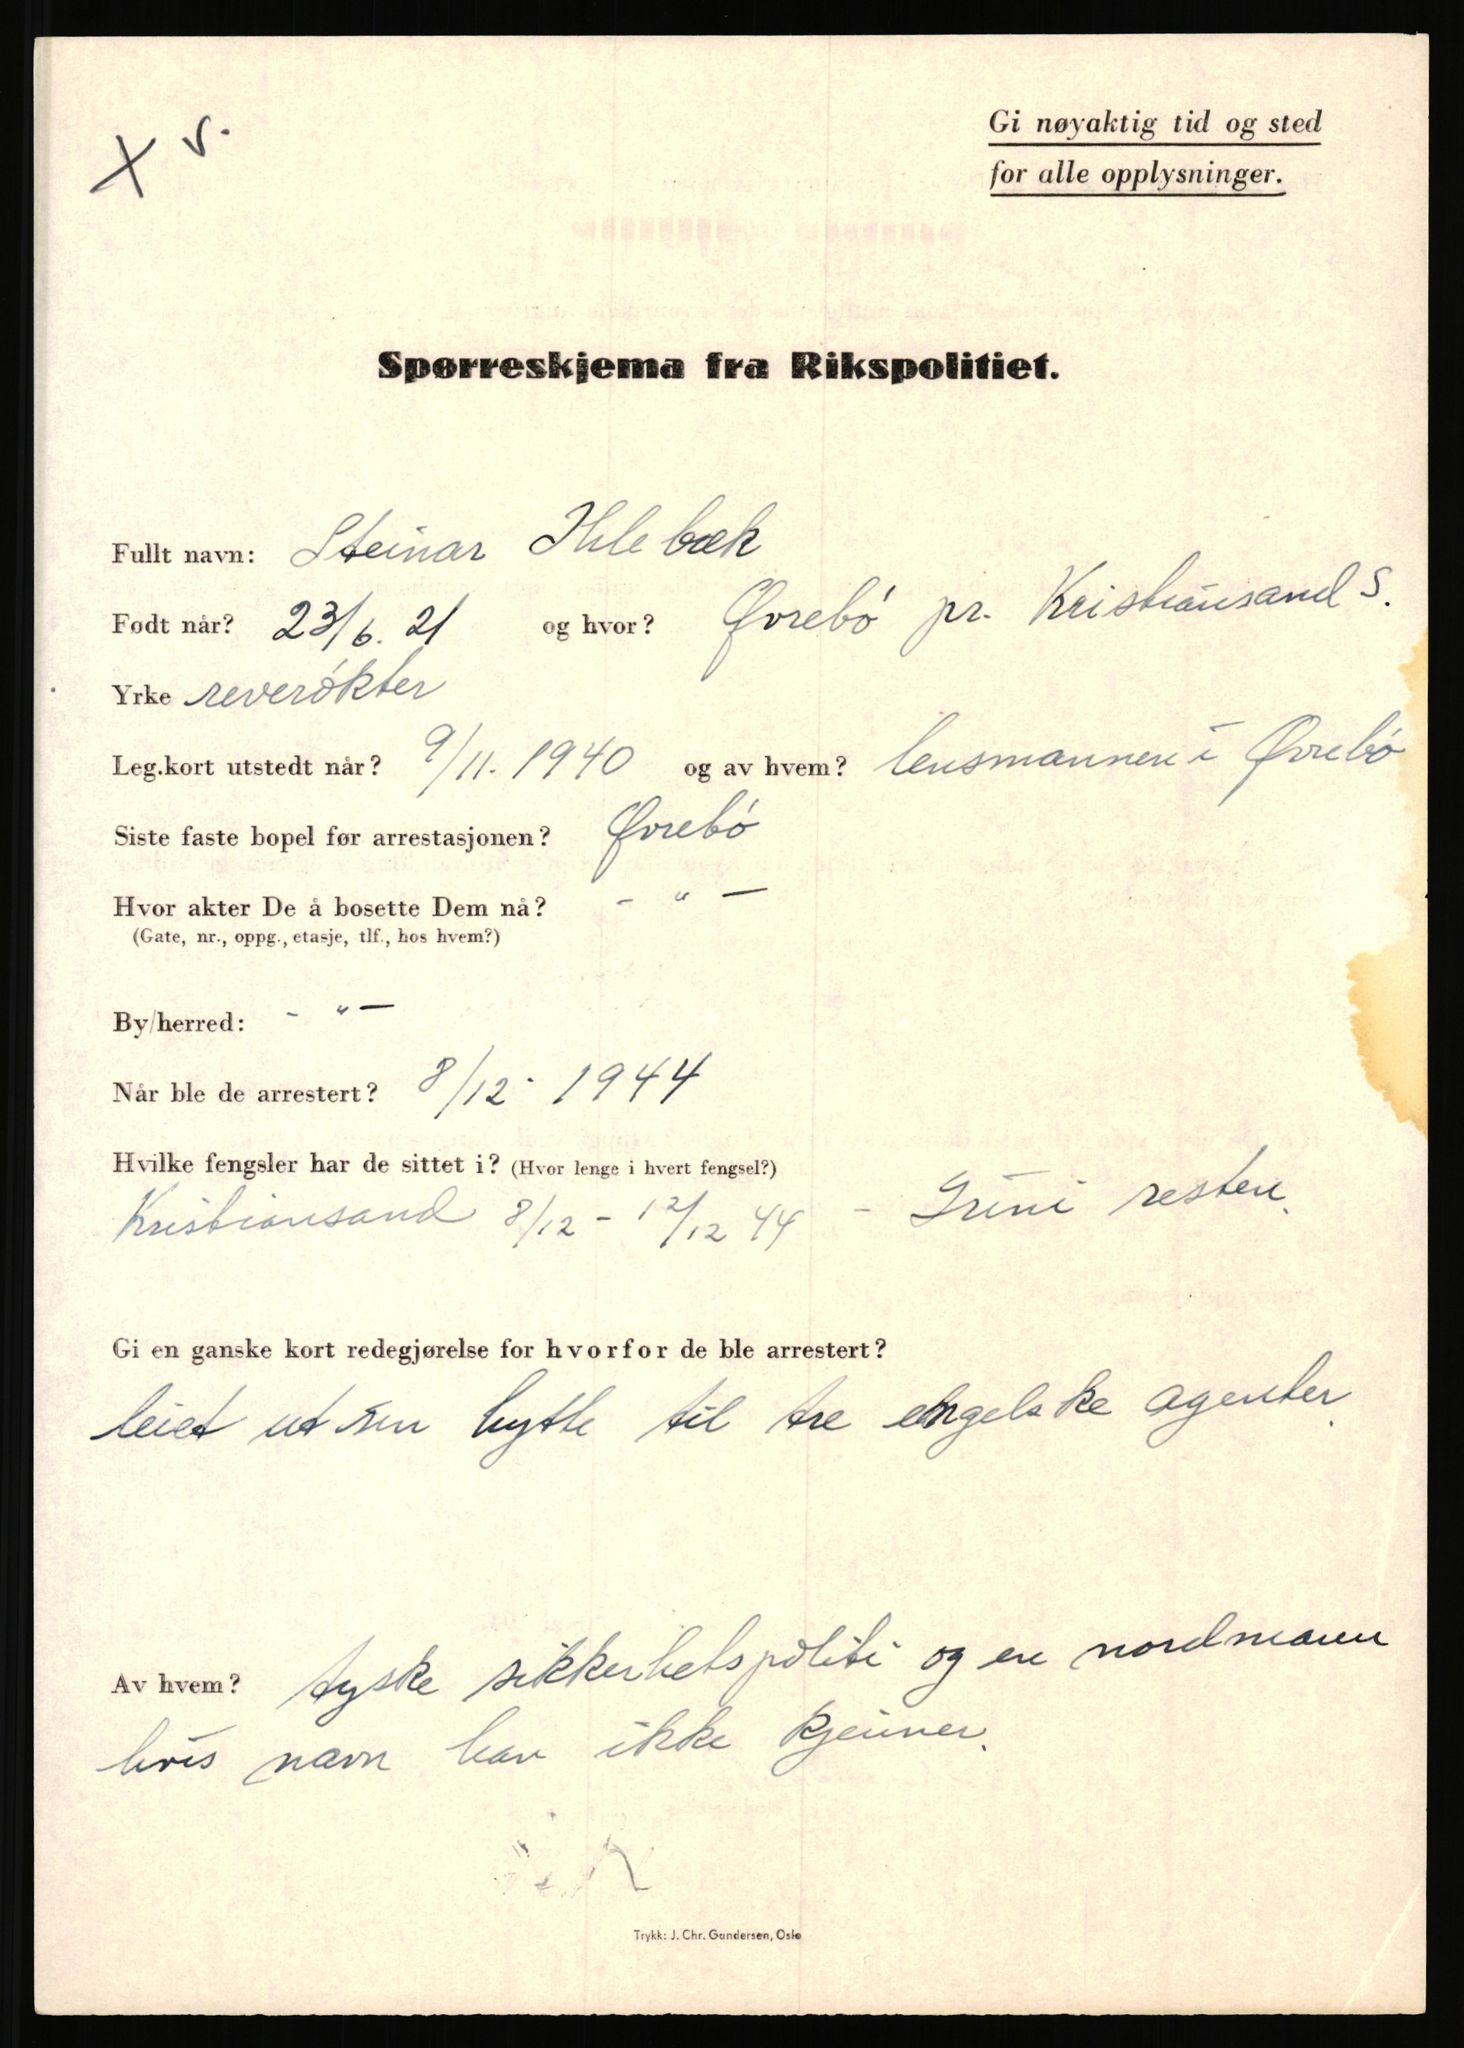 X v.
Gi nøyaktig tid og sted
for alle opplysninger.
Spørreskjema fra Rikspolitiet.
Fullt navn: Steinar Ihlebæk
Født når? 23/6. 21 og hvor? Øvrebó pr. Kristiansand S.
Yrke reverókter
Leg.kort utstedt når? 9/11. 1940 og av hvem? lensmannen i Øvrebó
Siste faste bopel før arrestasjonen? Øvrebó
Hvor akter De å bosette Dem nå? - " -
(Gate, nr., oppg., etasje, tlf., hos hvem?)
By/herred: - " -
Når ble de arrestert? 8/12 - 1944
Hvilke fengsler har de sittet i? (Hvor lenge i hvert fengsel?)
Kristiansand 8/12 - 12/12 44 - Grini resten.
Gi en ganske kort redegjørelse for hvorfor de ble arrestert?
leiet ut en hytte til tre engelske agenter.
Av hvem? tyske sikkerhetspoliti og en nordmann
hvis navn han ikke kjenner.
Trykk: J. Chr. Gundersen, Oslo